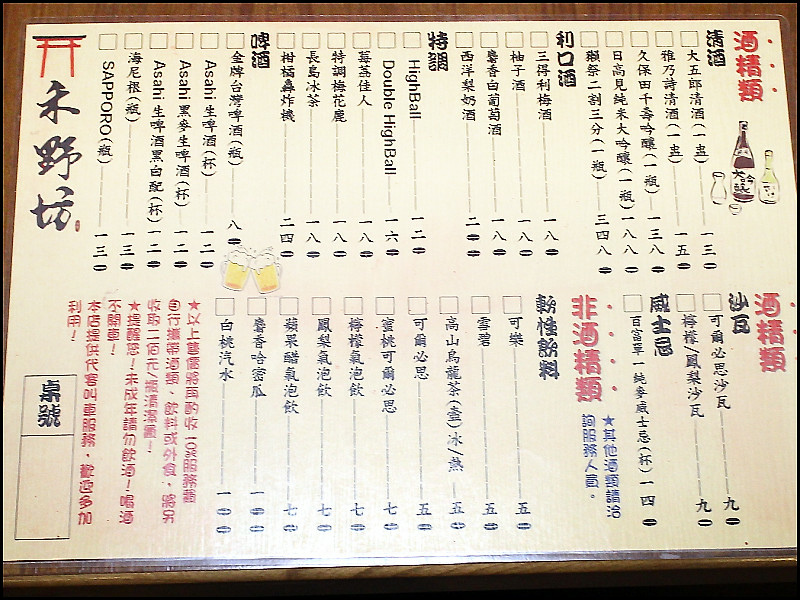 酒精類
清酒
大五郎清酒(一盅) 一三0
雅乃詩清酒(一盅) 一五0
久保田千壽吟釀(一瓶) 一三八0
日高見純米大吟釀(一瓶) 一八八0
獺祭二割三分(一瓶) 三四八0
利口酒
三得利梅酒 一八0
柚子酒 一八0
麝香白葡萄酒 一八0
西洋梨奶酒 二00
特調
HighBall 一二0
Double HighBall 一六0
莓荔佳人 一八0
特調梅花鹿 一八0
長島冰茶 一八0
柑橘轟炸機 二四0
啤酒
金牌台灣啤酒(瓶) 八0
Asahi 生啤酒(杯) 一二0
Asahi 黑麥生啤酒(杯) 一二0
Asahi 生啤酒黑白配(杯) 一二0
海尼根(瓶) 一三0
SAPPORO(瓶) 一三0
禾野坊
酒精類
沙瓦
可爾必思沙瓦 九0
檸檬/鳳梨沙瓦 九0
威士忌
百富單一純麥威士忌(杯) 一四0
★其他酒類請洽
詢服務人員。
非酒精類
軟性飲料
可樂 五0
雪碧 五0
高山烏龍茶(壺)冰/熱 五0
可爾必思 五0
蜜桃可爾必思 七0
檸檬氣泡飲 七0
鳳梨氣泡飲 七0
蘋果醋氣泡飲 七0
麝香哈密瓜 一00
白桃汽水 一00
★以上售價將再酌收10%服務費
自行攜帶酒類、飲料或外食，將另
收取二佰元/瓶清潔費！
★提醒您！未成年請勿飲酒！喝酒
不開車！
本店提供代客叫車服務，歡迎多加
利用！
桌號